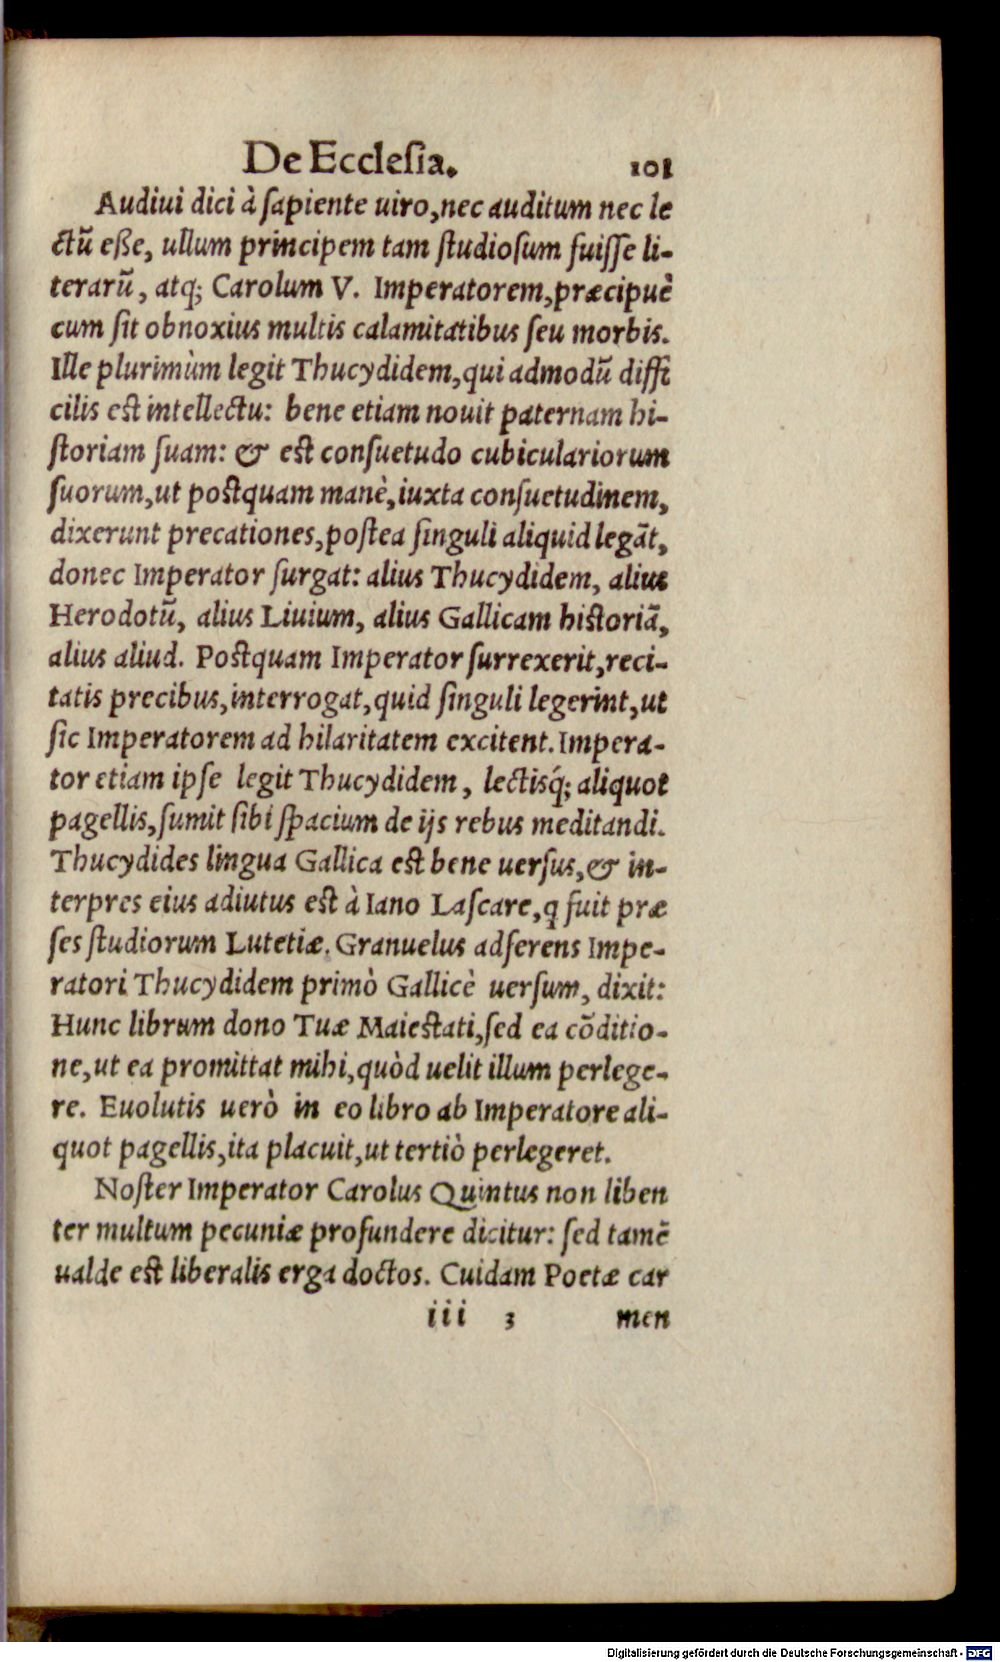 De Ecclesia. 101
Audiui dici à sapiente uiro, nec auditum nec le
ctū eße, ullum principem tam studiosum fuisse li-
terarū, atq; Carolum V. Imperatorem, præcipuè
cum sit obnoxius multis calamitatibus seu morbis.
Ille plurimùm legit Thucydidem, qui admodū diffi
cilis est intellectu: bene etiam nouit paternam hi-
storiam suam: & est consuetudo cubiculariorum
suorum, ut postquam manè, iuxta consuetudinem,
dixerunt precationes, postea singuli aliquid legāt,
donec Imperator surgat: alius Thucydidem, alius
Herodotū, alius Liuium, alius Gallicam historiā,
alius aliud. Postquam Imperator surrexerit, reci-
tatis precibus, interrogat, quid singuli legerint, ut
sic Imperatorem ad hilaritatem excitent. Impera-
tor etiam ipse legit Thucydidem, lectisq́; aliquot
pagellis, sumit sibi spacium de ijs rebus meditandi.
Thucydides lingua Gallica est bene uersus, & in-
terpres eius adiutus est à Iano Lascare, q̣ fuit præ
ses studiorum Lutetiæ. Granuelus adferens Impe-
ratori Thucydidem primò Gallicè uersum, dixit:
Hunc librum dono Tuæ Maiestati, sed ea cōditio-
ne, ut ea promittat mihi, quòd uelit illum perlege-
re. Euolutis uerò in eo libro ab Imperatore ali-
quot pagellis, ita placuit, ut tertiò perlegeret.
Noster Imperator Carolus Quintus non liben
ter multum pecuniæ profundere dicitur: sed tamē
ualde est liberalis erga doctos. Cuidam Poetæ car
iii 3 men
Digitalisierung gefördert durch die Deutsche Forschungsgemeinschaft - DFG